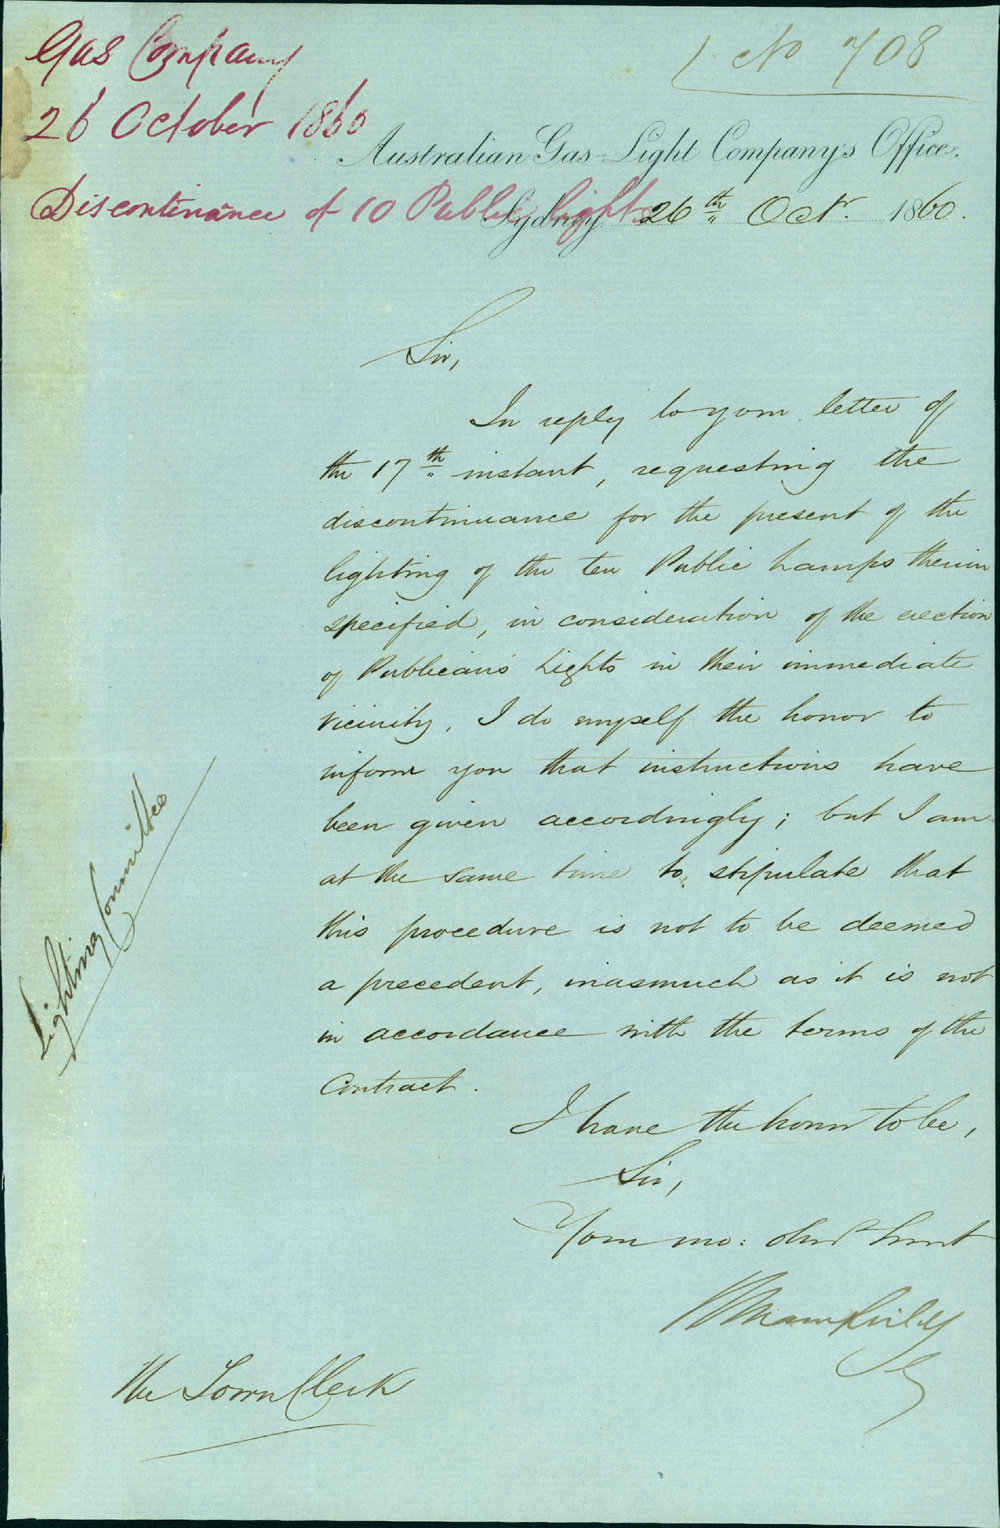 Gas Company
26 October 1860
Discontinance of 10 Public Lights
No 708
Australian Gas-Light Company's Office.
Sydney 26th Octr. 1860.
Sir,
In reply to your letter of
the 17th instant, requesting the
discontinuance for the present of the
lighting of the ten Public Lamps therein
specified, in consideration of the erection
of Publican's Lights in their immediate
vicinity, I do myself the honor to
inform you that instructions have
been given accordingly; but I am
at the same time to stipulate that
this procedure is not to be deemed
a precedent, inasmuch as it is not
in accordance with the terms of the
Contract.
I have the honor to be,
Sir,
Your mo: obed servt
The Town Clerk
Lighting Committee